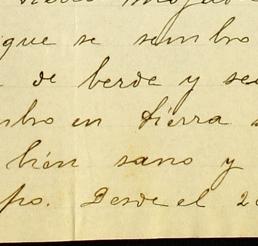 que se sembro
de berde y se
bro en tierra
bien sano y
po. Desde el 2